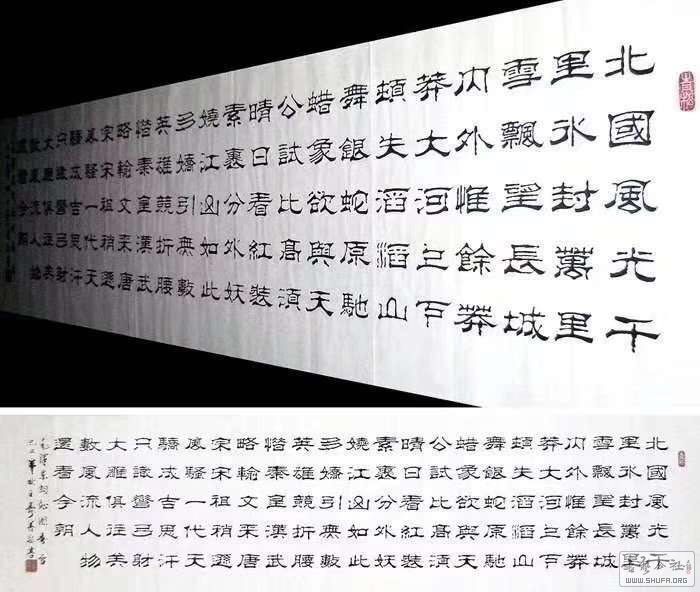 北國風光千
里冰封萬里
雪飄望長城
内外惟餘莽
莽大河上下
頓失滔滔山
舞銀蛇原馳
蜡象欲與天
公試比高須
晴日看紅裝
素裹分外妖
嬈江山如此
多嬌引無數
英雄競折腰
惜秦皇漢武
略輸文采唐
宗宋祖稍遜
風騷一代天
驕成吉思汗
只識彎弓射
大雕俱往矣
數風流人物
還看今朝
北國風光千
里冰封萬里
雪飄望長城
内外惟餘莽
莽大河上下
頓失滔滔山
舞銀蛇原馳
蜡象欲與天
公試比高須
晴日看紅裝
素裹分外妖
嬈江山如此
多嬌引無數
英雄競折腰
惜秦皇漢武
略輸文采唐
宗宋祖稍遜
風騷一代天
驕成吉思汗
只識彎弓射
大雕俱往矣
數風流人物
還看今朝
毛澤東詞沁園春雪
WWW.SHUFA.ORG